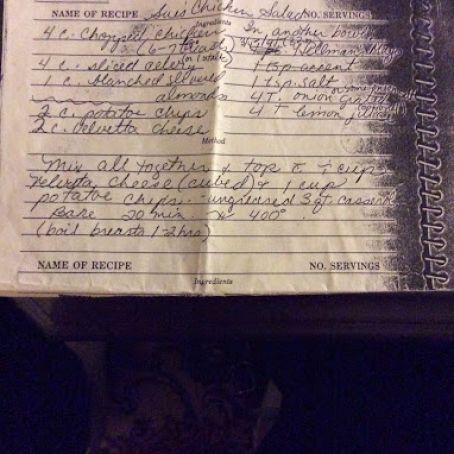 NAME OF RECIPE Sue's Chicken Salad NO. SERVINGS
Ingredients
4 c. chopped chicken
(6-7 breast)
4 c. sliced celery
1 c. blanched slivered
almonds
2 c. potatoe chips
2 c. velvetta cheese
In another bowl
Hellman
1 tsp. accent
1 tsp. salt
4 T. onion grated
4 T lemon juice
Method
Mix all together & top c 1 cup
velveta cheese (cubed) & 1 cup
potatoe chips. - ungreased 3 qt. casserole
Bake 20 min. 400°
(boil breasts 1-2 hrs)
NAME OF RECIPE NO. SERVINGS
Ingredients